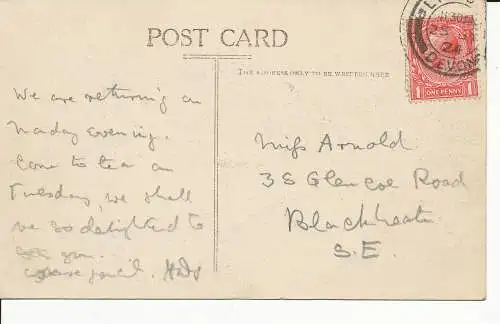 POST CARD
THE ADDRESS ONLY TO BE WRITTEN HERE
We are returning on
Monday evening.
Come to tea on
Tuesday, we shall
be so delighted to
you.
excuse pencil.
Miss Arnold
38 Glencoe Road
Blackheath
S.E.
DEVON
24
ONE PENNY
1 1